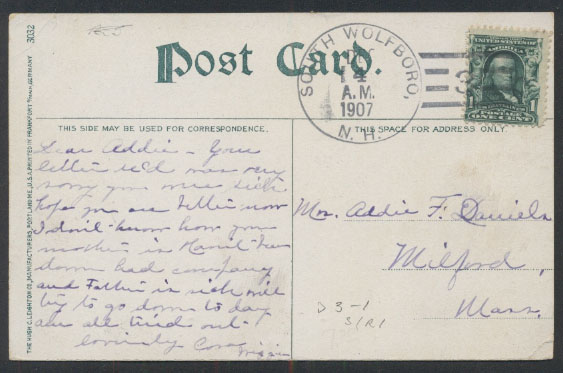 Post Card.
SOUTH WOLFBORO,
14
A.M.
1907
N.H.
3
UNITED STATES OF AMERICA
POSTAGE
1 ONE CENT 1
THIS SIDE MAY BE USED FOR CORRESPONDENCE.
THIS SPACE FOR ADDRESS ONLY.
Dear Addie – Your
letter rec'd was very
sorry you were sick
hope you are better now
I don't know how your
mother is
down had company
and Father is sick will
try to go down to day
are all tired out
lovingly Cora
Mrs. Addie F. Daniels
Milford,
Mass.
D 3-1
S/R1
3032
THE HUGH C. LEIGHTON CO., MANUFACTURERS, PORTLAND, ME., U.S.A. PRINTED IN FRANKFORT GERMANY